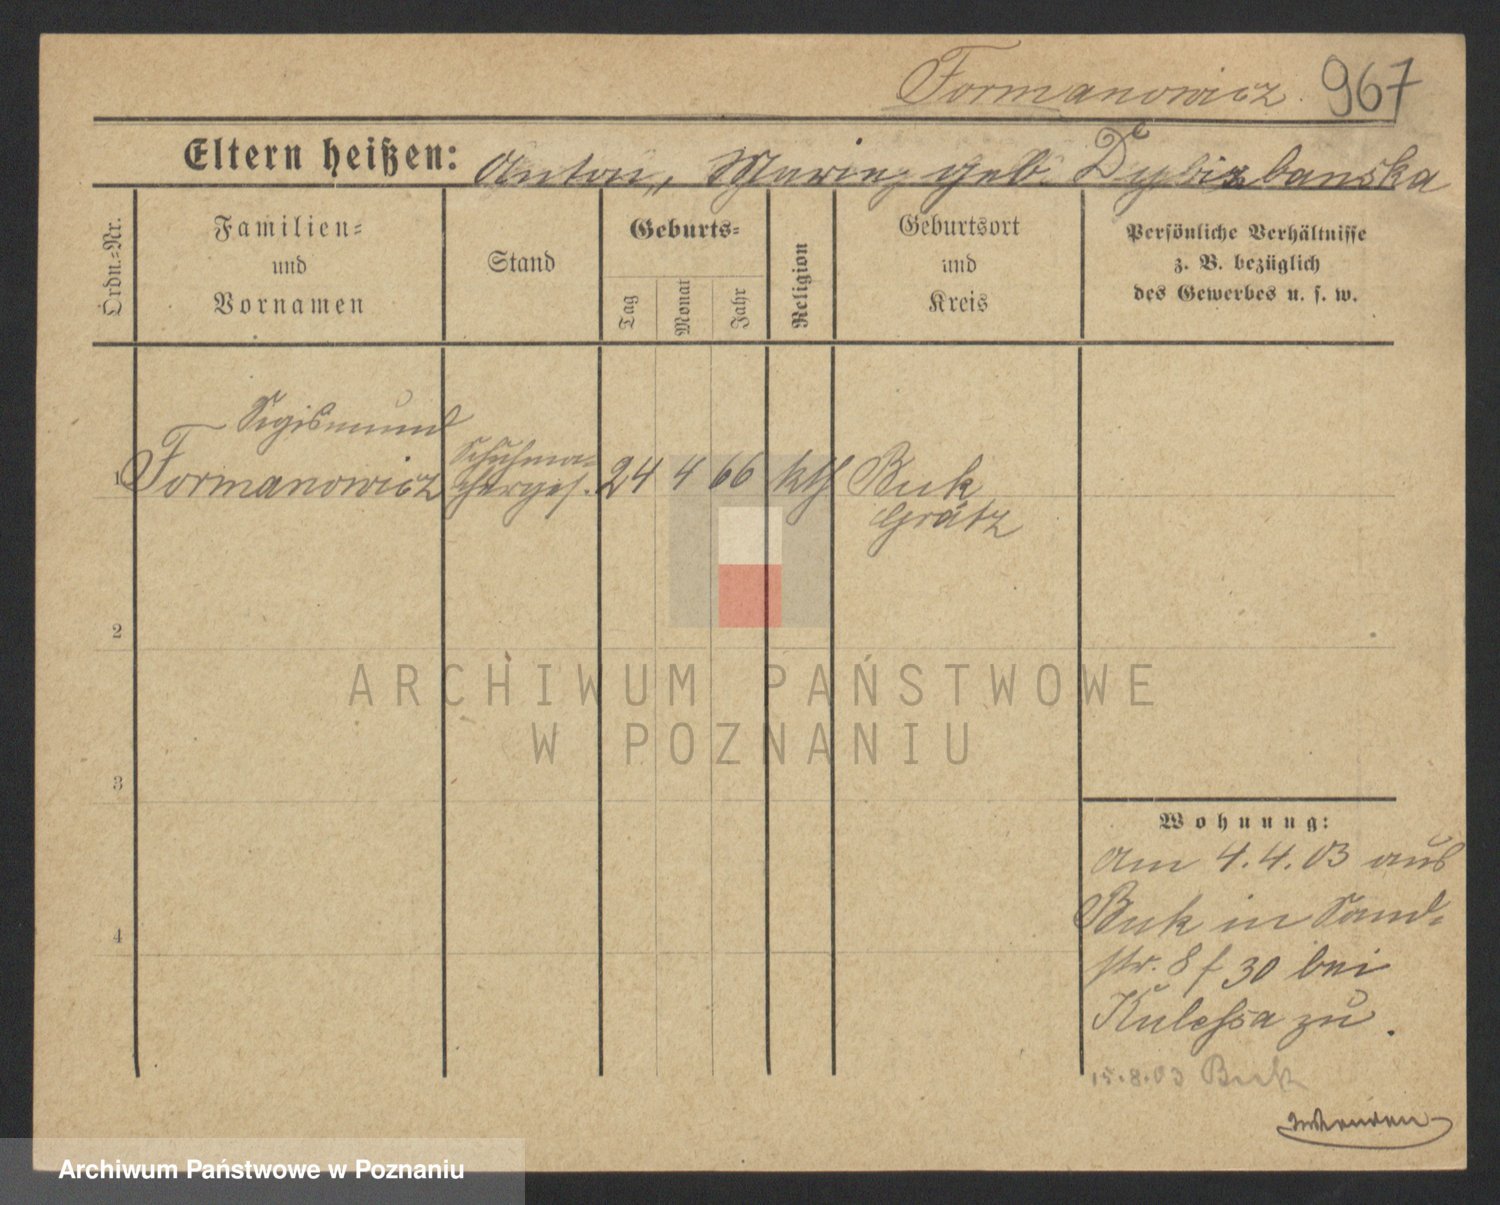 Formanowicz. 967
Eltern heißen: Anton, Marie, geb. Dybizbanska
Ordn.-Nr.
Familien-
und
Vornamen
Stand
Geburts-
Tag
Monat
Jahr
Religion
Geburtsort
und
Kreis
Persönliche Verhältnisse
z. B. bezüglich
des Gewerbes u. s. w.
Sigismund
1 Formanowicz
Schuhma-
cherges.
24 4 66 kth Buk
Grätz
2
3
4
ARCHIWUM PAŃSTWOWE
W POZNANIU
Wohnung:
am 4.4.03 aus
Buk in Sand-
str. 8 f 30 bei
Kulessa zu.
15.8.03 Buk
wenden
Archiwum Państwowe w Poznaniu